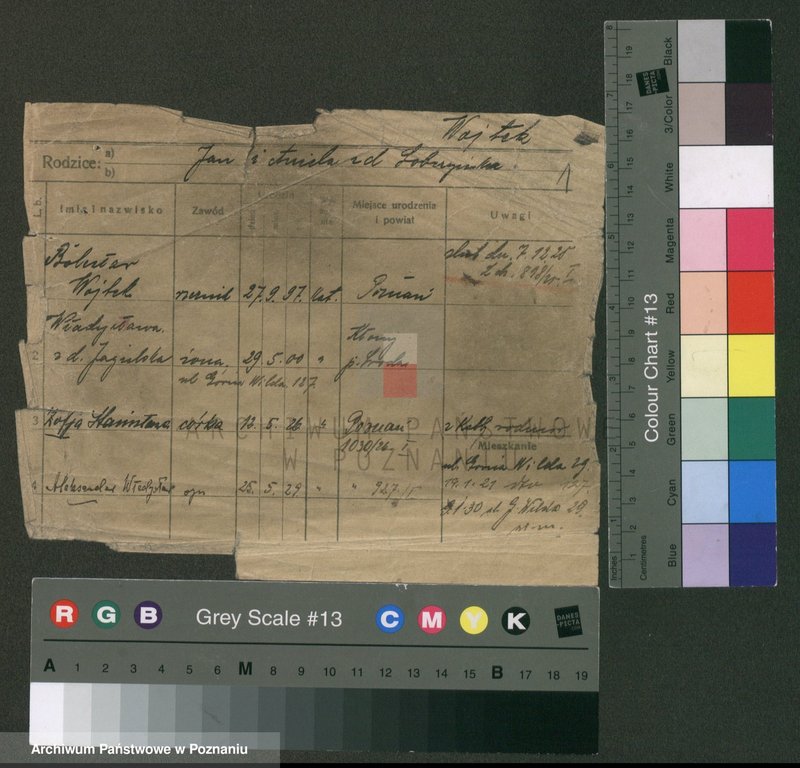 Wojtek
Rodzice: a) b) Jan i Aniela z d. Dobrzyńska
1
L. b. Imię i nazwisko Zawód Miejsce urodzenia i powiat Uwagi
Bolesław ślub dn. 7.12.25
Wojtek 27.9.97. kat. Poznań
Władysława
2 z d. Jagielska żona 29.5.00 " p. Środa
ul. Górna Wilda 127.
3 Zofja Stanisława córka 13. 5. 26 " Poznań
1030/26 I
Mieszkanie
ul. Górna Wilda 29.
4 Aleksander Władysław syn 25. 5. 29 " " 927
19.1.21
1.30 ul. G. Wilda 29.
ARCHIWUM PAŃSTWOWE
W POZNANIU
R G B Grey Scale #13 C M Y K DANES -PICTA .COM
A 1 2 3 4 5 6 M 8 9 10 11 12 13 14 15 B 17 18 19
Colour Chart #13
DANES -PICTA .COM
Black
3/Color
White
Magenta
Red
Yellow
Green
Cyan
Blue
Inches
Centimetres
1 2 3 4 5 6 7 8
1 2 3 4 5 6 7 8 9 10 11 12 13 14 15 16 17 18 19
Archiwum Państwowe w Poznaniu